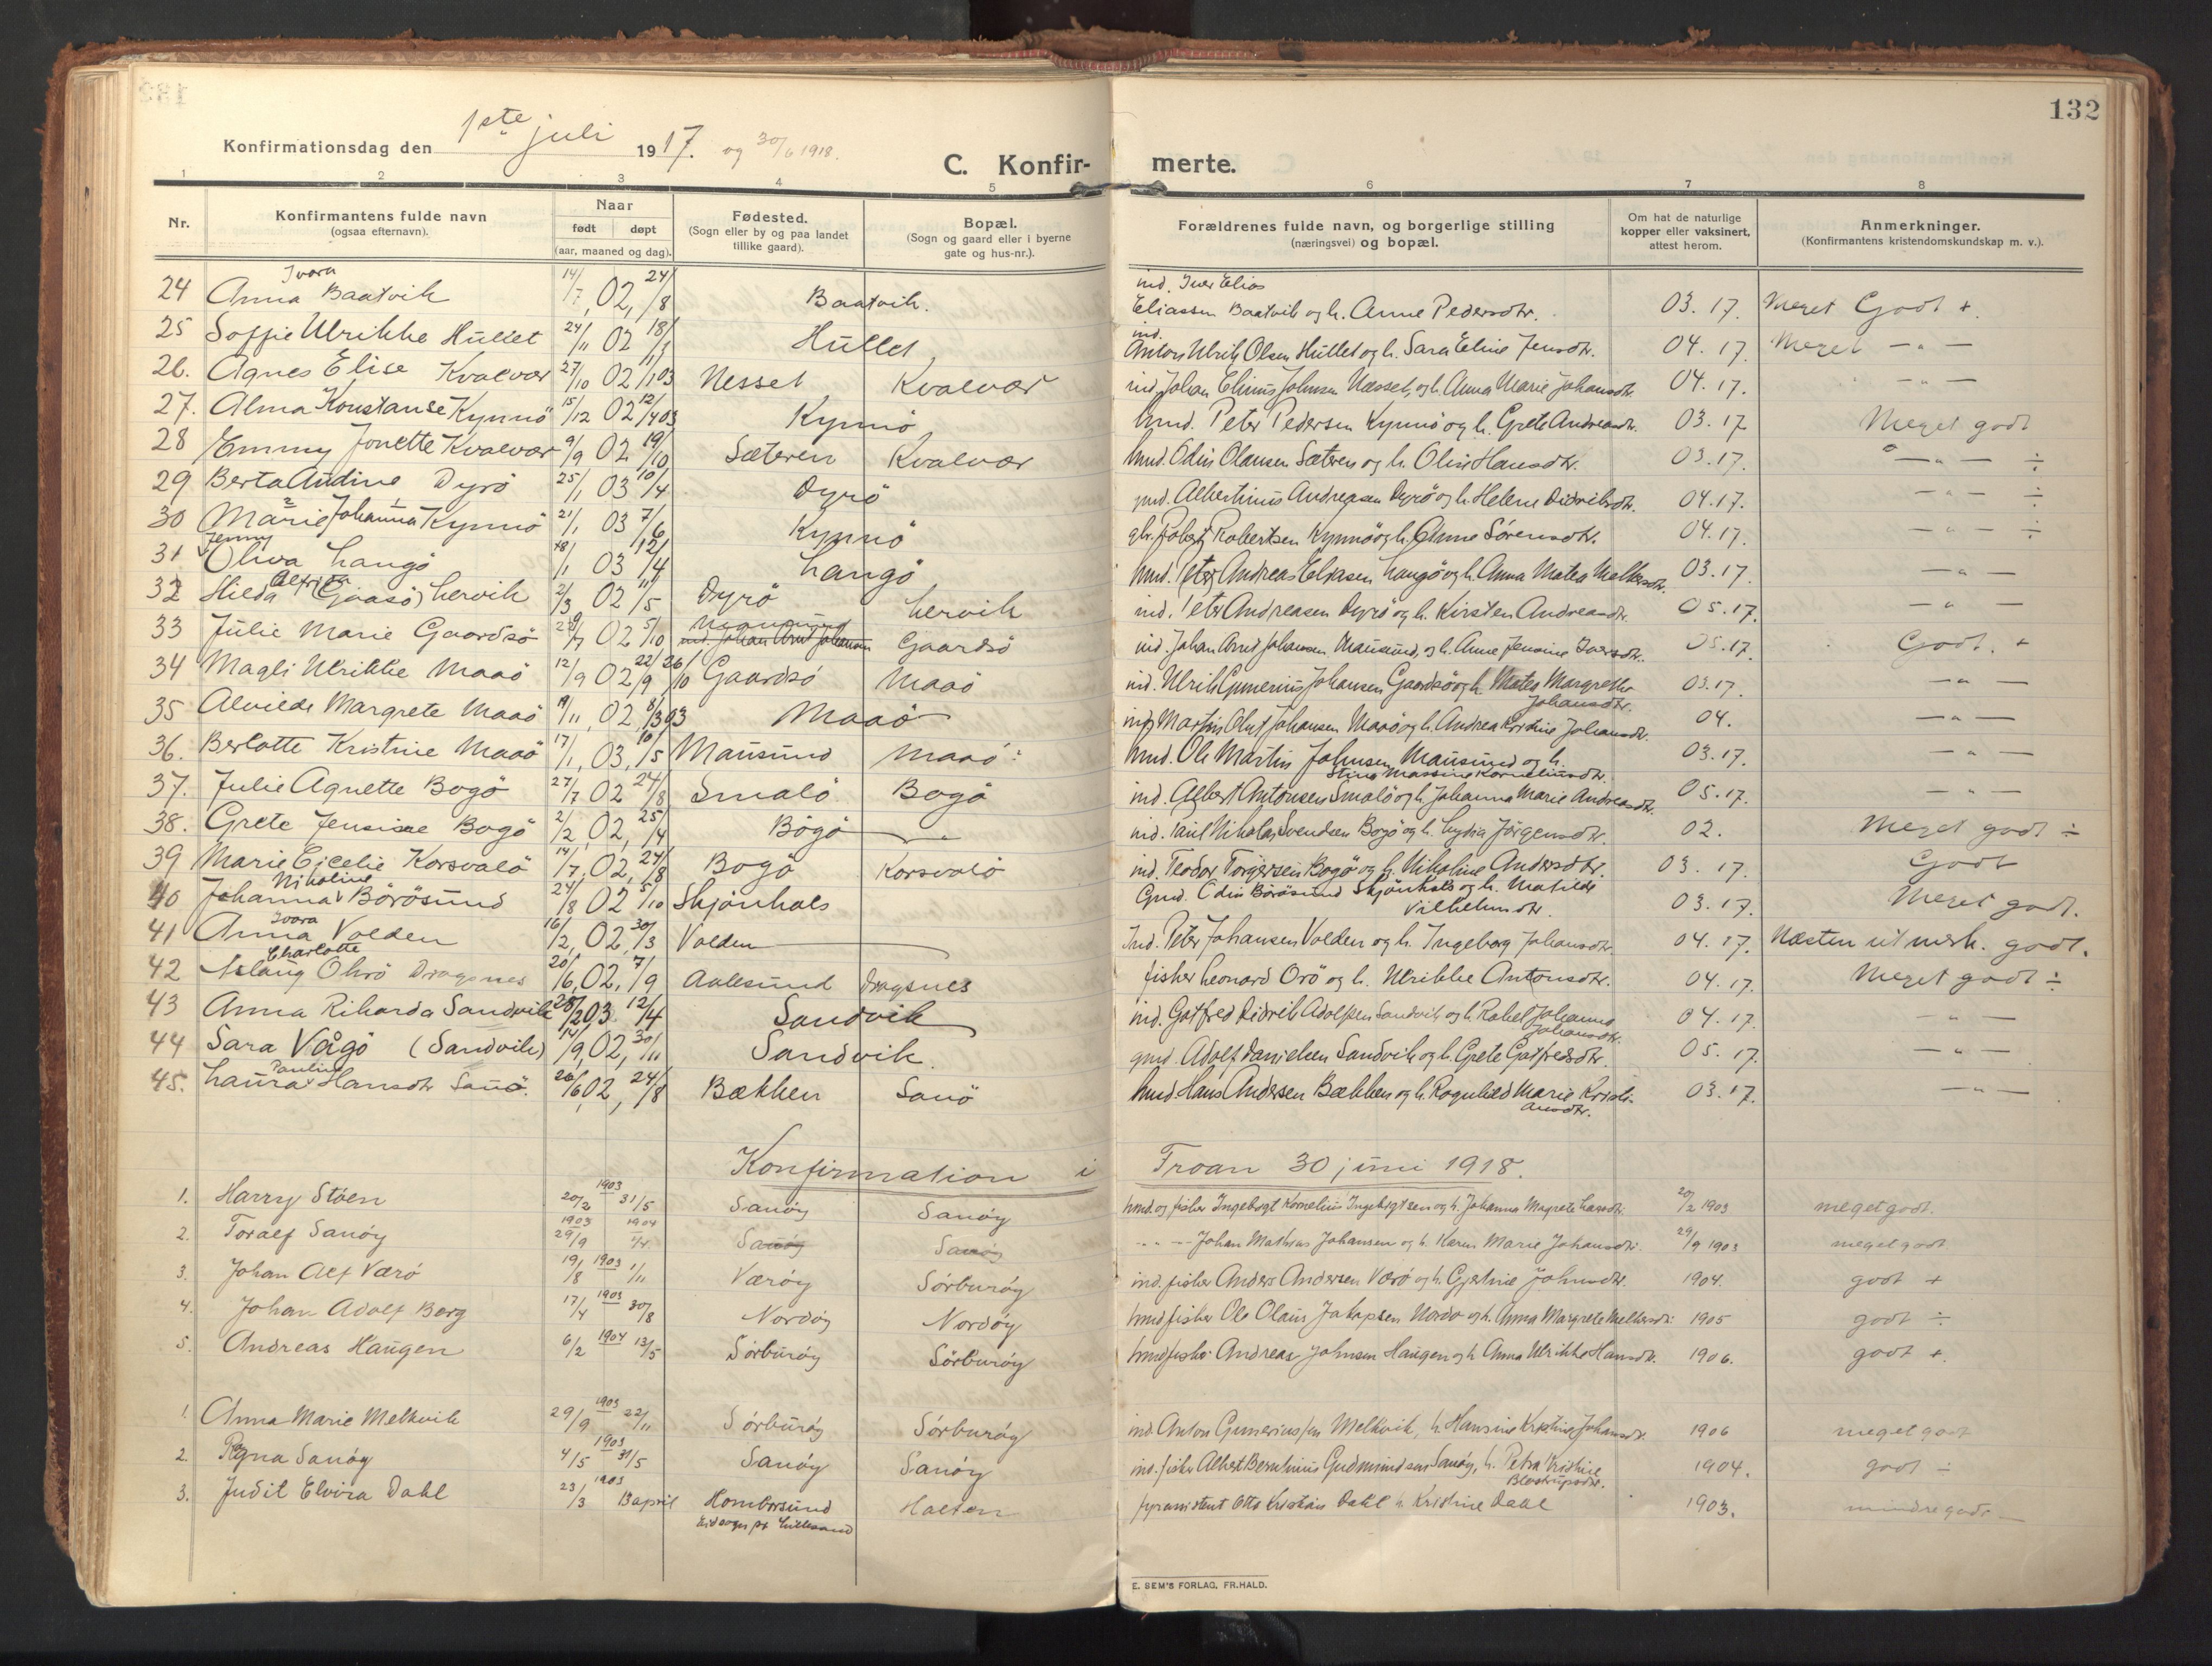 132
Konfirmationsdag den 1ste juli 1917. og 30/6 1918.
C. Konfirmerte.
1 2 3 4 5 6 7 8
Nr. Konfirmantens fulde navn (ogsaa efternavn). Naar født døpt (aar, maaned og dag). Fødested. (Sogn eller by og paa landet tillike gaard). Bopæl. (Sogn og gaard eller i byerne gate og hus-nr.). Forældrenes fulde navn, og borgerlige stilling (næringsvei) og bopæl. Om hat de naturlige kopper eller vaksinert, attest herom. Anmerkninger. (Konfirmantens kristendomskundskap m. v.).
24 Anna Ivara Baatvik 14/7, 02, 24/8 Baatvik. ind. Iver Elias Eliassen Baatvik og h. Anne Pedersdtr. 03. 17. Meget Godt +.
25 Soffie Ulrikke Hullet 24/11 02 18/1 Hullet ind. Anton Ulrik Olsen Hullet og h. Sara Eline Jensdtr. 04. 17. Meget — " —
26. Agnes Elise Kvalvær 27/10 02 1/1 03 Nesset Kvalvær ind. Johan Elinus Johnsen Næsset, og h. Anna Marie Johansdtr. 04. 17. — " —
27. Alma Konstanse Kynnö 15/12 02 12/4 03 Kynnö hmd. Peter Pedersen Kynnö og h. Grete Andreasdtr. 03. 17 Meget godt
28 Emmy Jonette Kvalvær 9/9 02 19/10 Sæteren Kvalvær hmd. Odin Olausen Sæteren og h. Oline Hansdtr. 03. 17. — " — ÷
29 Berta Audine Dyrö 25/1 03 10/4 Dyrö gmd. Albertinus Andreasen Dyrö og h. Helene Didriksdtr. 04. 17. — " — ÷
30 Marie Johanna Kynnö 21/1 03 7/6 Kynnö gbr. Robert Robertsen Kynnö og h. Anne Sörensdtr. 04. 17. — " — ÷
31 Jenny Oliva Langö 18/1 03 12/4 Langö hmd. Peter Andreas Eliasen Langö og h. Anna Matea Melkersdtr. 03. 17. — " —
32 Hilda Alfrida (Gaasö) Lervik 2/3 02 11/5 Dyrö Lervik ind. Peter Andreasen Dyrö og h. Kirsten Andreasdtr. 05. 17. — " —
33 Julie Marie Gaardsö 29/7 02 5/10 ind. Johan Arnt Johansen Gaardsö ind. Johan Arnt Johansen Mausund, og h. Anne Jensine Iversdtr. 05. 17. Godt. +
34 Magli Ulrikke Maaö 12/9 02 22/9 26/10 Gaardsö Maaö ind. Ulrik Gunerius Johansen Gaardsö og h. Matea Margrethe Johansdtr. 03. 17. — " —
35 Alvilde Margrete Maaö 19/11, 02 8/3 03 Maaö ind. Martin Olut Johansen Maaö og h. Andrea Kordine Johansdtr. 04. — " —
36. Berlotte Kristine Maaö 17/1, 03, 10/5 Mausund Maaö hmd. Ole Martin Johnsen Mausund og h. Stina Massine Korneliusdtr. 03. 17. — " —
37. Julie Agnette Bogö 27/7 02 24/8 Smalö Bogö ind. Albert Antonsen Smalö og h. Johanna Marie Andreasdtr. 05. 17. — " —
38. Grete Jensine Bogö 2/2, 02, 25/4 Bogö — " ind. Paul Nikolai Svendsen Bogö og h. Lydia Jörgensdtr. 02. Meget godt ÷
39 Marie Cicelie Korsvalö 14/7, 02, 24/8 Bogö Korsvalö ind. Teodor Torgersen Bogö og h. Nikoline Andersdtr. 03. 17. Godt
40 Johanna Nikoline Börösund 24/8 02 5/10 Skjönhals Gmd. Odin Börösund Skjönhals og h. Matilde Vilhelmsdtr. 03. 17. Meget godt.
41 Anna Ivara Volden 16/2, 02, 30/3 Volden Ind. Peter Johansen Volden og h. Ingeborg Johansdtr. 04. 17. Næsten utmerk. godt.
42 Aslaug Charlotte Ohrö Dragsnes 20/6, 02, 7/9 Aalesund Dragsnes fisker Leonard Orö og h. Ulrikke Antonsdtr. 04. 17. Meget godt ÷
43 Anna Rikarda Sandvik 28/2 03 12/4 Sandvik ind. Gotfred Didrik Adolfsen Sandvik og h. Rakel Johanna Johansdtr. 04. 17. — " —
44 Sara Vågö (Sandvik) 14/9, 02, 30/11 Sandvik gmd. Adolf Danielsen Sandvik og h. Grete Gotfredsdtr. 05. 17. — " —
45. Laura Pauline Hansdtr Sauö. 26/6, 02, 24/8 Bækken Sauö hmd. Hans Andersen Bækken og h. Ragnhild Marie Kristiansdtr. 03. 17. — " —
Konfirmation i Froan 30 juni 1918.
1. Harry Stöen 20/2 1903 31/5 Sauöy Sauöy hmd. og fisker Ingebrigt Kornelius Ingebrigtsen og h. Johanna Margrete Larsdtr. 20/2 1903 meget godt.
2. Toralf Sauöy 1903 29/9 1904 Sauöy Sauöy — " — Johan Mathias Johansen og h. Karen Marie Johansdtr. 29/9 1903 meget godt
3. Johan Alf Værö 19/8 1903 1/11 Væröy Sörburöy ind. fisker Anders Andersen Værö og h. Gjertine Johnsdtr. 1904. godt +
4. Johan Adolf Borg 17/4 1903 30/8 Nordöy Nordöy hmd fisker Ole Olaus Jakopsen Nordö og h. Anna Margrete Melkersdtr: 1905 godt ÷
5. Andreas Haugen 6/2 1904 13/5 Sörburöy Sörburöy hmd fisker Andreas Johnsen Haugen og h. Anna Ulrikke Hansdtr. 1906. godt +
1. Anna Marie Melkvik 29/9 1903 22/11 Sörburöy Sörburöy ind. Anton Gunerius sen Melkvik, h. Hansine Kristine Johansdtr. 1906 meget godt
2. Ragna Sauöy 4/5 1903 31/5 Sauöy Sauöy ind. fisker Albert Berntinus Gudmundsen Sauöy, h. Petra Kristine 1904. godt ÷
3. Judit Elvira Dahl 23/3 1903 13 april Hombersund Eidsogn pr Lillesand Halten fyrassistent Otto Kristian Dahl h. Kristine Dahl 1903. mindre godt —
E. SEM'S FORLAG, FR.HALD.